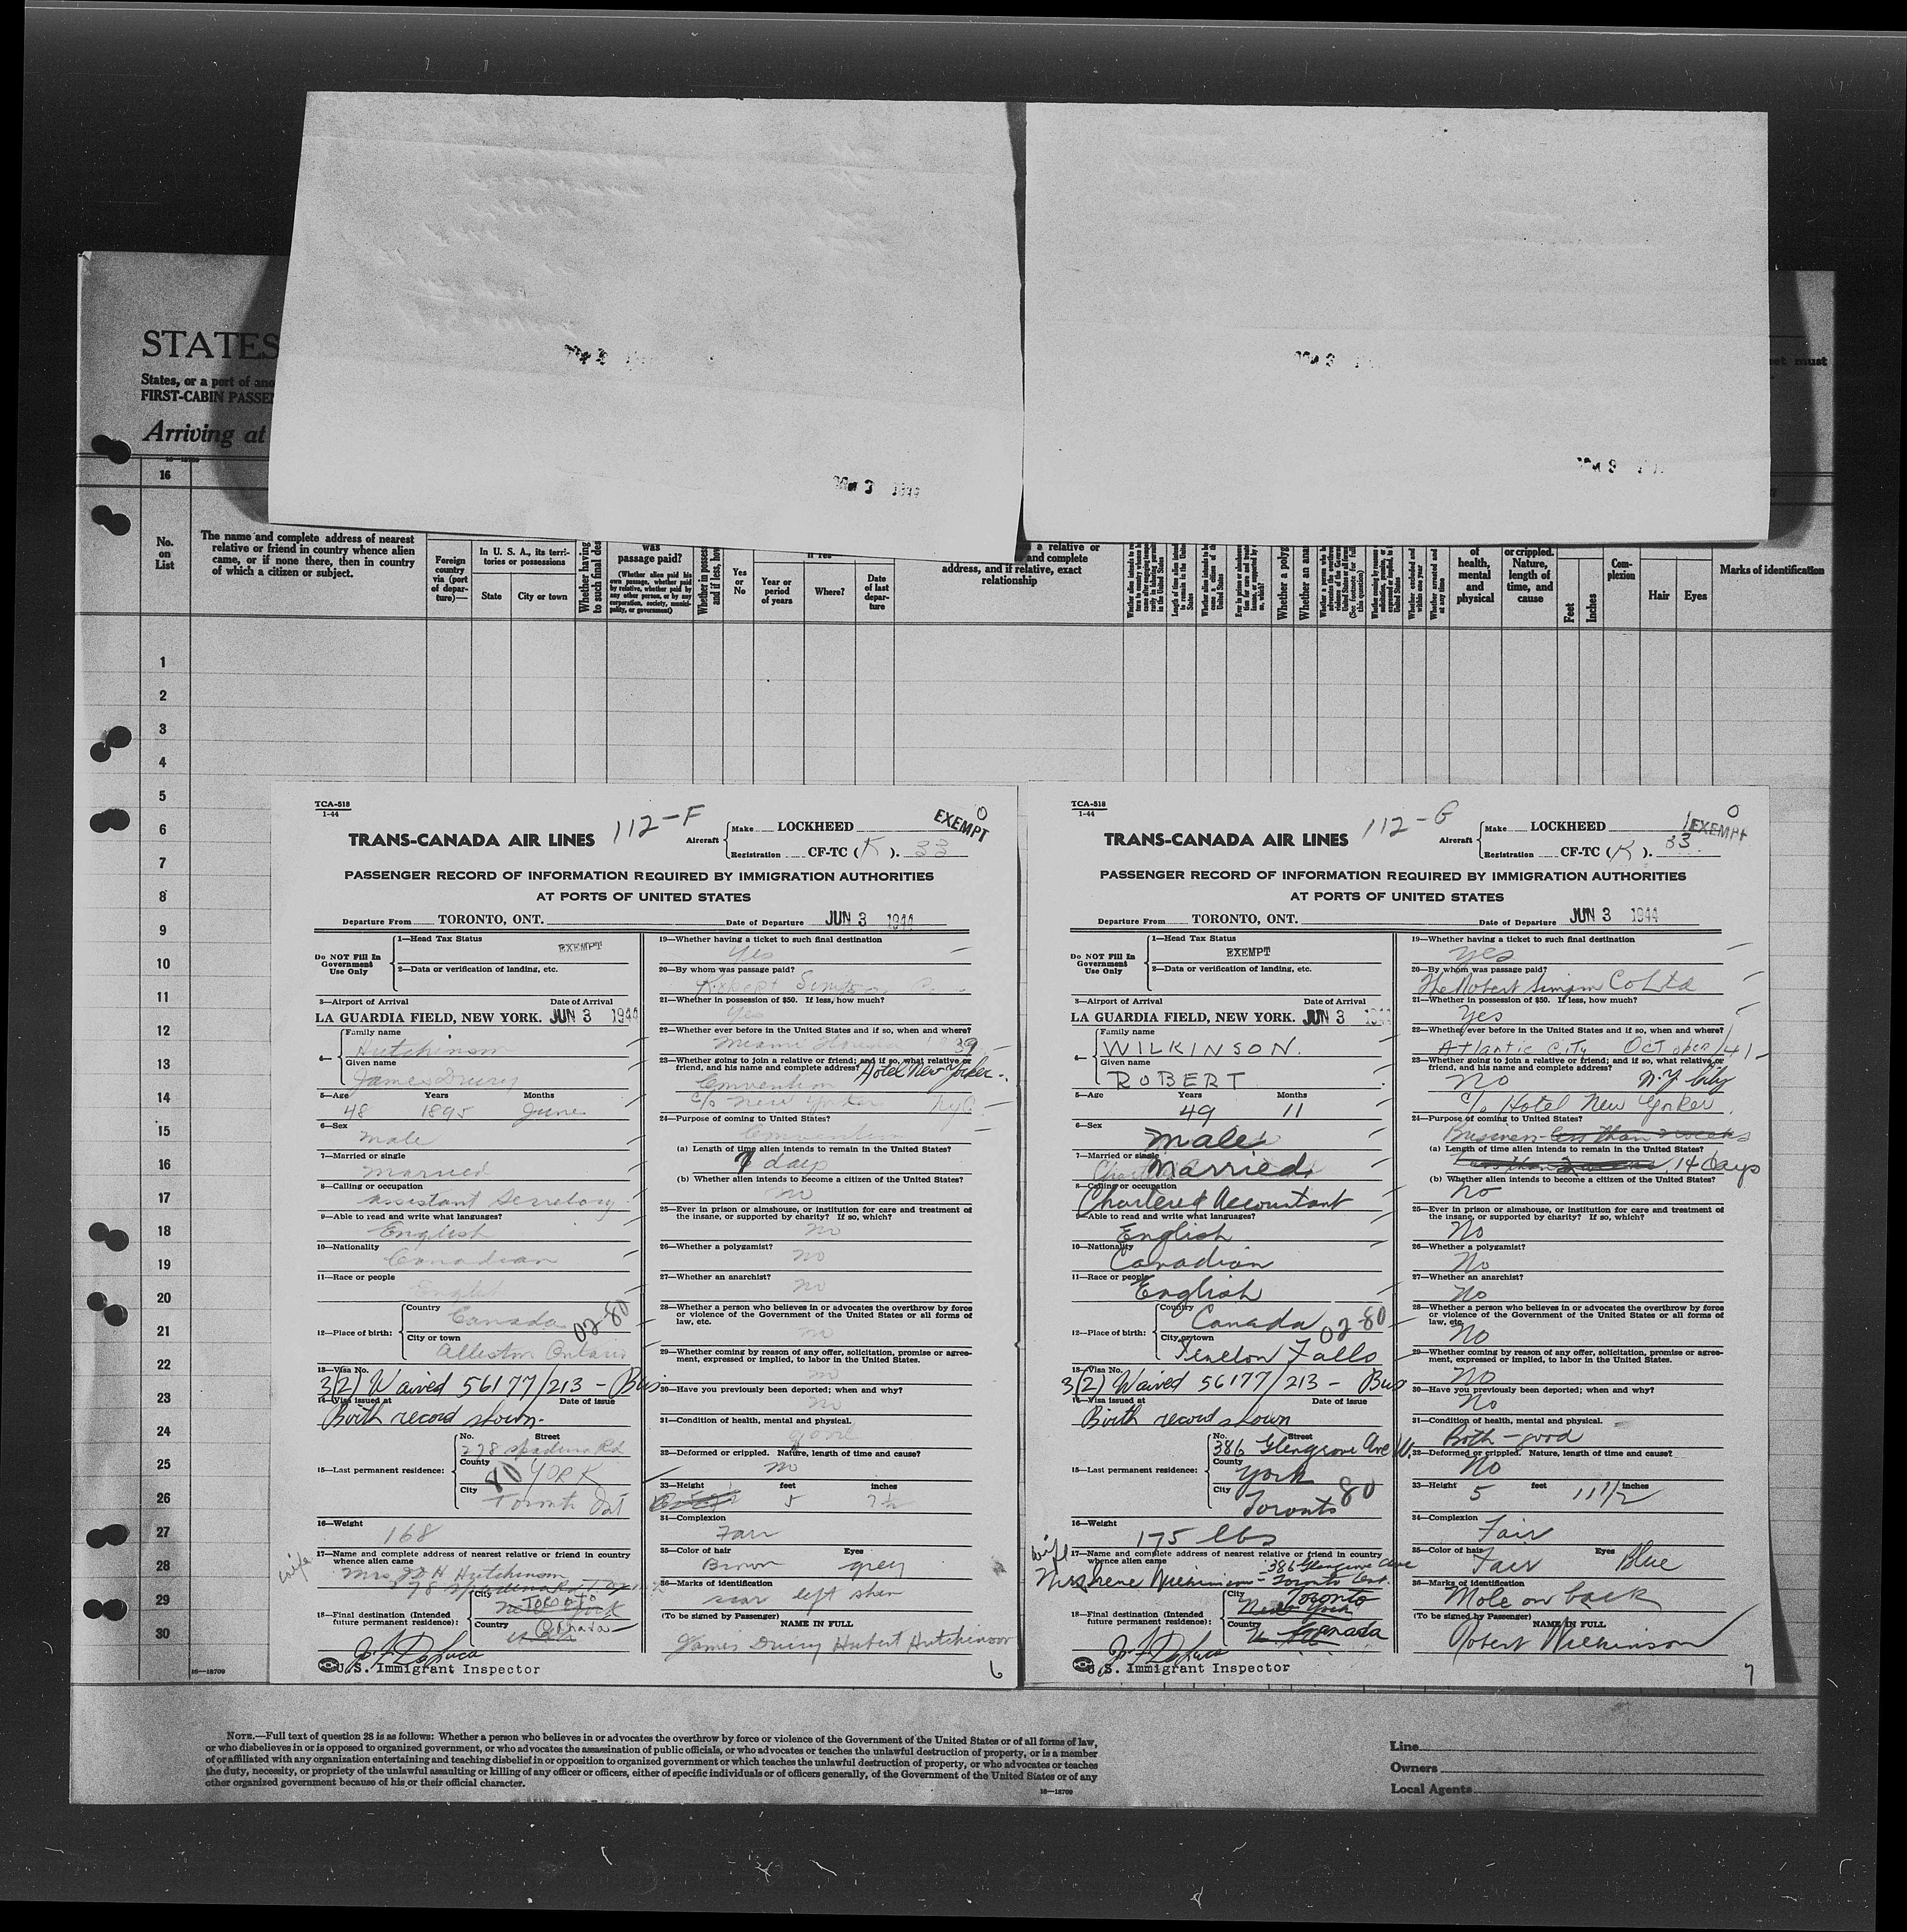 STATES
States, or a port of ano
FIRST-CABIN PASSEN
Arriving at
16
No. on List
The name and complete address of nearest relative or friend in country whence alien came, or if none there, then in country of which a citizen or subject.
Foreign country via (port of departure)—
In U. S. A., its territories or possessions
State
City or town
was passage paid?
(Whether alien paid his own passage, whether paid by relative, whether paid by any other person, or by any corporation, society, municipality, or government)
Yes or No
Year or period of years
Where?
Date of last departure
a relative or
and complete
address, and if relative, exact
relationship
Whether a polyg
Whether an anar
of health, mental and physical
or crippled. Nature, length of time, and cause
Feet
Inches
Complexion
Hair
Eyes
Marks of identification
1
2
3
4
5
6
7
8
9
10
11
12
13
14
15
16
17
18
19
20
21
22
23
24
25
26
27
28
29
30
16—18709
TCA-518
1-44
112-F
TRANS-CANADA AIR LINES
Aircraft
Make LOCKHEED
Registration CF-TC (K). 33
EXEMPT
PASSENGER RECORD OF INFORMATION REQUIRED BY IMMIGRATION AUTHORITIES
AT PORTS OF UNITED STATES
Departure From TORONTO, ONT. Date of Departure JUN 3 1944
Do NOT Fill In Government Use Only
1—Head Tax Status EXEMPT
2—Data or verification of landing, etc.
3—Airport of Arrival Date of Arrival
LA GUARDIA FIELD, NEW YORK. JUN 3 1944
4—
Family name
Hutchinson
Given name
James Drury
5—Age Years Months
48 1895 June
6—Sex
male
7—Married or single
married
8—Calling or occupation
assistant Secretary
9—Able to read and write what languages?
English
10—Nationality
Canadian
11—Race or people
English
12—Place of birth:
Country
Canada 02-80
City or town
Alliston Ontario
13—Visa No.
3(2) Waived 56177/213 - Bus
14—Visa issued at Date of issue
Birth record shown.
15—Last permanent residence:
No. Street
278 Spadina Rd
County
80 YORK
City
Toronto Ont
16—Weight
168
17—Name and complete address of nearest relative or friend in country whence alien came
wife
Mrs J D H Hutchinson
78 Spadina Rd
18—Final destination (Intended future permanent residence):
City
Toronto
New York
Country
Canada
U.S. Immigrant Inspector
19—Whether having a ticket to such final destination
Yes
20—By whom was passage paid?
Robert Simpson Co
21—Whether in possession of $50. If less, how much?
Yes
22—Whether ever before in the United States and if so, when and where?
Miami Florida 1939
23—Whether going to join a relative or friend; and if so, what relative or friend, and his name and complete address?
Hotel New Yorker
Convention
c/o New Yorker NYC
24—Purpose of coming to United States?
Convention
(a) Length of time alien intends to remain in the United States?
7 days
(b) Whether alien intends to become a citizen of the United States?
no
25—Ever in prison or almshouse, or institution for care and treatment of the insane, or supported by charity? If so, which?
no
26—Whether a polygamist?
no
27—Whether an anarchist?
no
28—Whether a person who believes in or advocates the overthrow by force or violence of the Government of the United States or all forms of law, etc.
no
29—Whether coming by reason of any offer, solicitation, promise or agreement, expressed or implied, to labor in the United States.
no
30—Have you previously been deported; when and why?
no
31—Condition of health, mental and physical.
good
32—Deformed or crippled. Nature, length of time and cause?
no
33—Height feet inches
5 7½
34—Complexion
Fair
35—Color of hair Eyes
Brown grey
36—Marks of identification
scar left shin
(To be signed by Passenger) NAME IN FULL
James Drury Hubert Hutchinson
6
TCA-518
1-44
112-G
TRANS-CANADA AIR LINES
Aircraft
Make LOCKHEED
Registration CF-TC (K). 33
EXEMPT
PASSENGER RECORD OF INFORMATION REQUIRED BY IMMIGRATION AUTHORITIES
AT PORTS OF UNITED STATES
Departure From TORONTO, ONT. Date of Departure JUN 3 1944
Do NOT Fill In Government Use Only
1—Head Tax Status
EXEMPT
2—Data or verification of landing, etc.
3—Airport of Arrival Date of Arrival
LA GUARDIA FIELD, NEW YORK. JUN 3 1944
4—
Family name
WILKINSON.
Given name
ROBERT
5—Age Years Months
49 11
6—Sex
Male
7—Married or single
Married
8—Calling or occupation
Chartered Accountant
9—Able to read and write what languages?
English
10—Nationality
Canadian
11—Race or people
English
12—Place of birth:
Country
Canada 02-80
City or town
Fenelon Falls
13—Visa No.
3(2) Waived 56177/213 - Bus
14—Visa issued at Date of issue
Birth record shown
15—Last permanent residence:
No. Street
386 Glengrove Ave W.
County
York
City
Toronto 80
16—Weight
175 lbs
17—Name and complete address of nearest relative or friend in country whence alien came
wife
386 Glengrove Ave
Mrs Irene Wilkinson - Toronto Ont.
18—Final destination (Intended future permanent residence):
City
Toronto
New York
Country
Canada
U.S. Immigrant Inspector
19—Whether having a ticket to such final destination
Yes
20—By whom was passage paid?
The Robert Simpson Co Ltd
21—Whether in possession of $50. If less, how much?
Yes
22—Whether ever before in the United States and if so, when and where?
Atlantic City October/41
23—Whether going to join a relative or friend; and if so, what relative or friend, and his name and complete address?
No N.Y. City
c/o Hotel New Yorker
24—Purpose of coming to United States?
Business less than 2 weeks
(a) Length of time alien intends to remain in the United States?
less than 2 weeks, 14 days
(b) Whether alien intends to become a citizen of the United States?
No
25—Ever in prison or almshouse, or institution for care and treatment of the insane, or supported by charity? If so, which?
No
26—Whether a polygamist?
No
27—Whether an anarchist?
No
28—Whether a person who believes in or advocates the overthrow by force or violence of the Government of the United States or all forms of law, etc.
No
29—Whether coming by reason of any offer, solicitation, promise or agreement, expressed or implied, to labor in the United States.
No
30—Have you previously been deported; when and why?
No
31—Condition of health, mental and physical.
Both - good
32—Deformed or crippled. Nature, length of time and cause?
No
33—Height feet inches
5 11 1/2
34—Complexion
Fair
35—Color of hair Eyes
Fair Blue
36—Marks of identification
Mole on back
(To be signed by Passenger) NAME IN FULL
Robert Wilkinson
7
NOTE.—Full text of question 28 is as follows: Whether a person who believes in or advocates the overthrow by force or violence of the Government of the United States or of all forms of law,
or who disbelieves in or is opposed to organized government, or who advocates the assassination of public officials, or who advocates or teaches the unlawful destruction of property, or is a member
of or affiliated with any organization entertaining and teaching disbelief in or opposition to organized government or which teaches the unlawful destruction of property, or who advocates or teaches
the duty, necessity, or propriety of the unlawful assaulting or killing of any officer or officers, either of specific individuals or of officers generally, of the Government of the United States or of any
other organized government because of his or their official character.
16—18709
Line
Owners
Local Agents